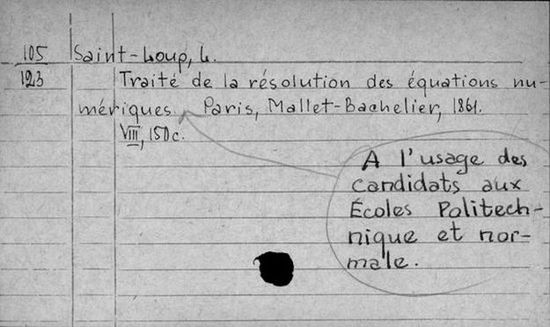 105 Saint-Loup, L.
123 Traité de la résolution des équations nu-
mériques. Paris, Mallet-Bachelier, 1861.
VIII, 150 c.
A l'usage des
candidats aux
Écoles Politech-
nique et nor-
male.